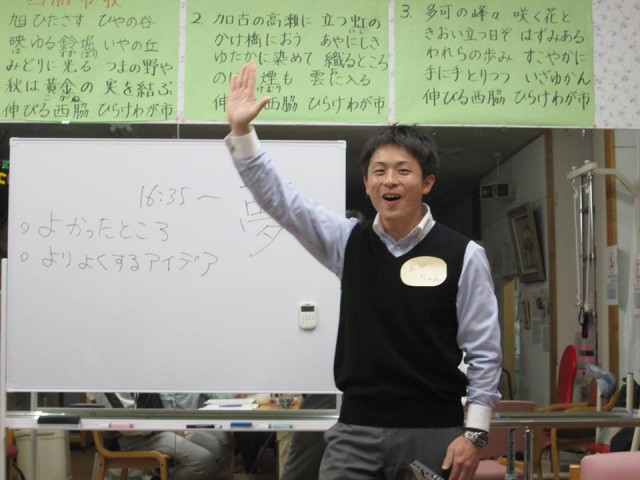 西脇市歌
旭ひたさす ひやの谷
映ゆる鈴堀 いやの丘
みどりに光る つまの野や
秋は黄金の 実を結ぶ
伸びる西脇 ひらけわが市
2. 加古の高瀬に 立つ虹の
かけ橋におう あやにしき
ゆたかに染めて 織るところ
煙も 雲に入る
伸びる西脇 ひらけわが市
3. 多可の峰々 咲く花と
きおい立つ日ぞ はずみある
われらの歩み すこやかに
手に手とりつつ いざゆかん
伸びる西脇 ひらけわが市
夢
16:35〜
○よかったところ
○よりよくするアイデア
ちゃん